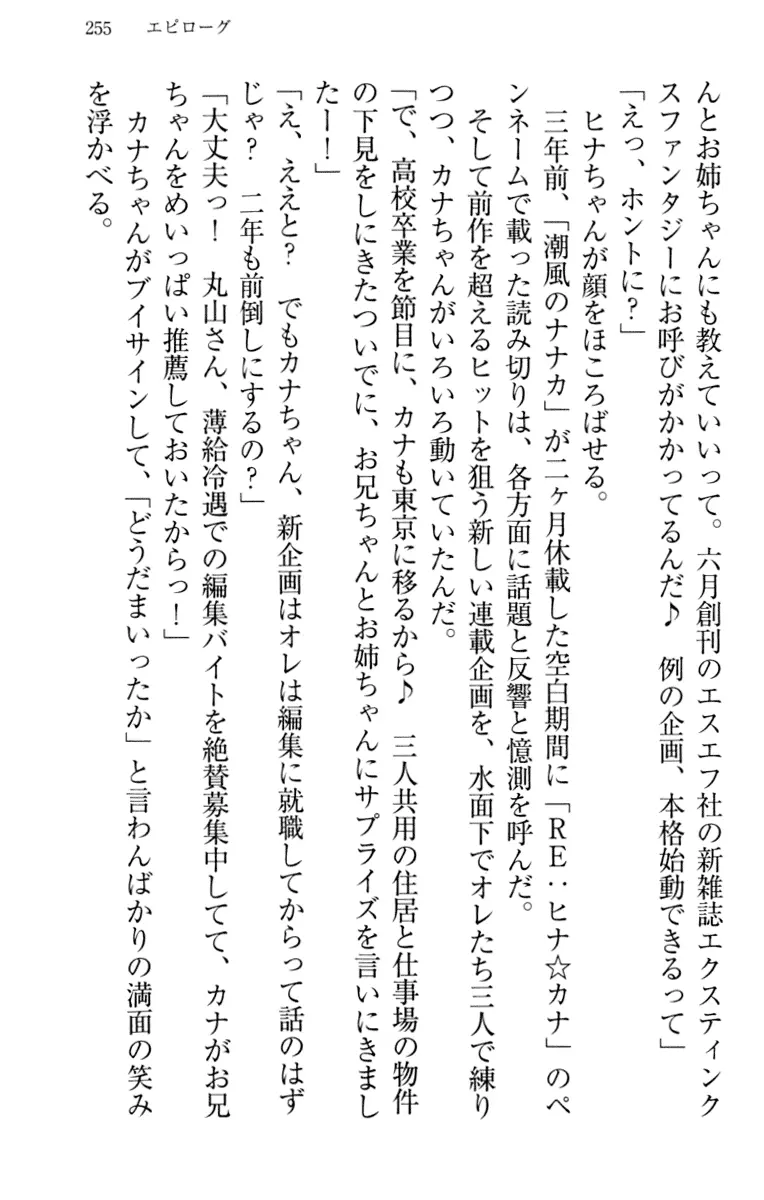 255　エピローグ
んとお姉ちゃんにも教えていいって。六月創刊のエスエフ社の新雑誌エクスティンク
スファンタジーにお呼びがかかってるんだ♪　例の企画、本格始動できるって」
「えっ、ホントに？」
　ヒナちゃんが顔をほころばせる。
　三年前、「潮風のナナカ」が二ヶ月休載した空白期間に「ＲＥ：ヒナ☆カナ」のペ
ンネームで載った読み切りは、各方面に話題と反響と憶測を呼んだ。
　そして前作を超えるヒットを狙う新しい連載企画を、水面下でオレたち三人で練り
つつ、カナちゃんがいろいろ動いていたんだ。
「で、高校卒業を節目に、カナも東京に移るから♪　三人共用の住居と仕事場の物件
の下見をしにきたついでに、お兄ちゃんとお姉ちゃんにサプライズを言いにきまし
たー！」
「え、ええと？　でもカナちゃん、新企画はオレは編集に就職してからって話のはず
じゃ？　二年も前倒しにするの？」
「大丈夫っ！　丸山さん、薄給冷遇での編集バイトを絶賛募集中してて、カナがお兄
ちゃんをめいっぱい推薦しておいたからっ！」
　カナちゃんがブイサインして、「どうだまいったか」と言わんばかりの満面の笑み
を浮かべる。